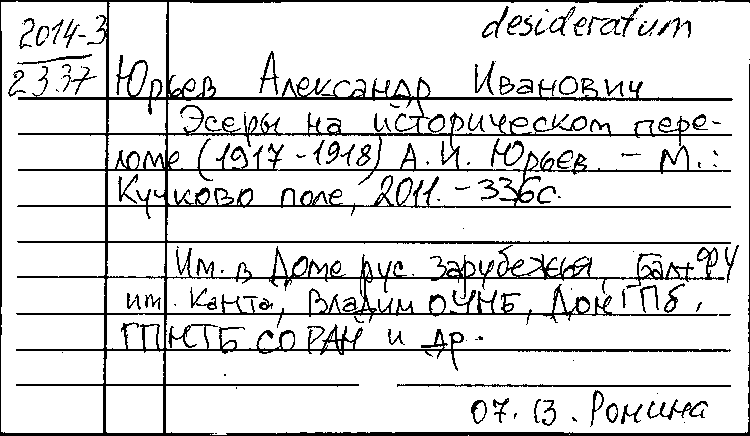 desideratum
2014-3
2337
Юрьев Александр Иванович
Эсеры на историческом пере-
ломе (1917-1918) А. И. Юрьев. - М.:
Кучково поле, 2011. - 336с.
Им. в Доме рус. зарубежья, Балт ФУ
им. Канта, Владим ОУНБ, Дон ГПб,
ГПНТБ СО РАН и др.
07. 13. Ронина